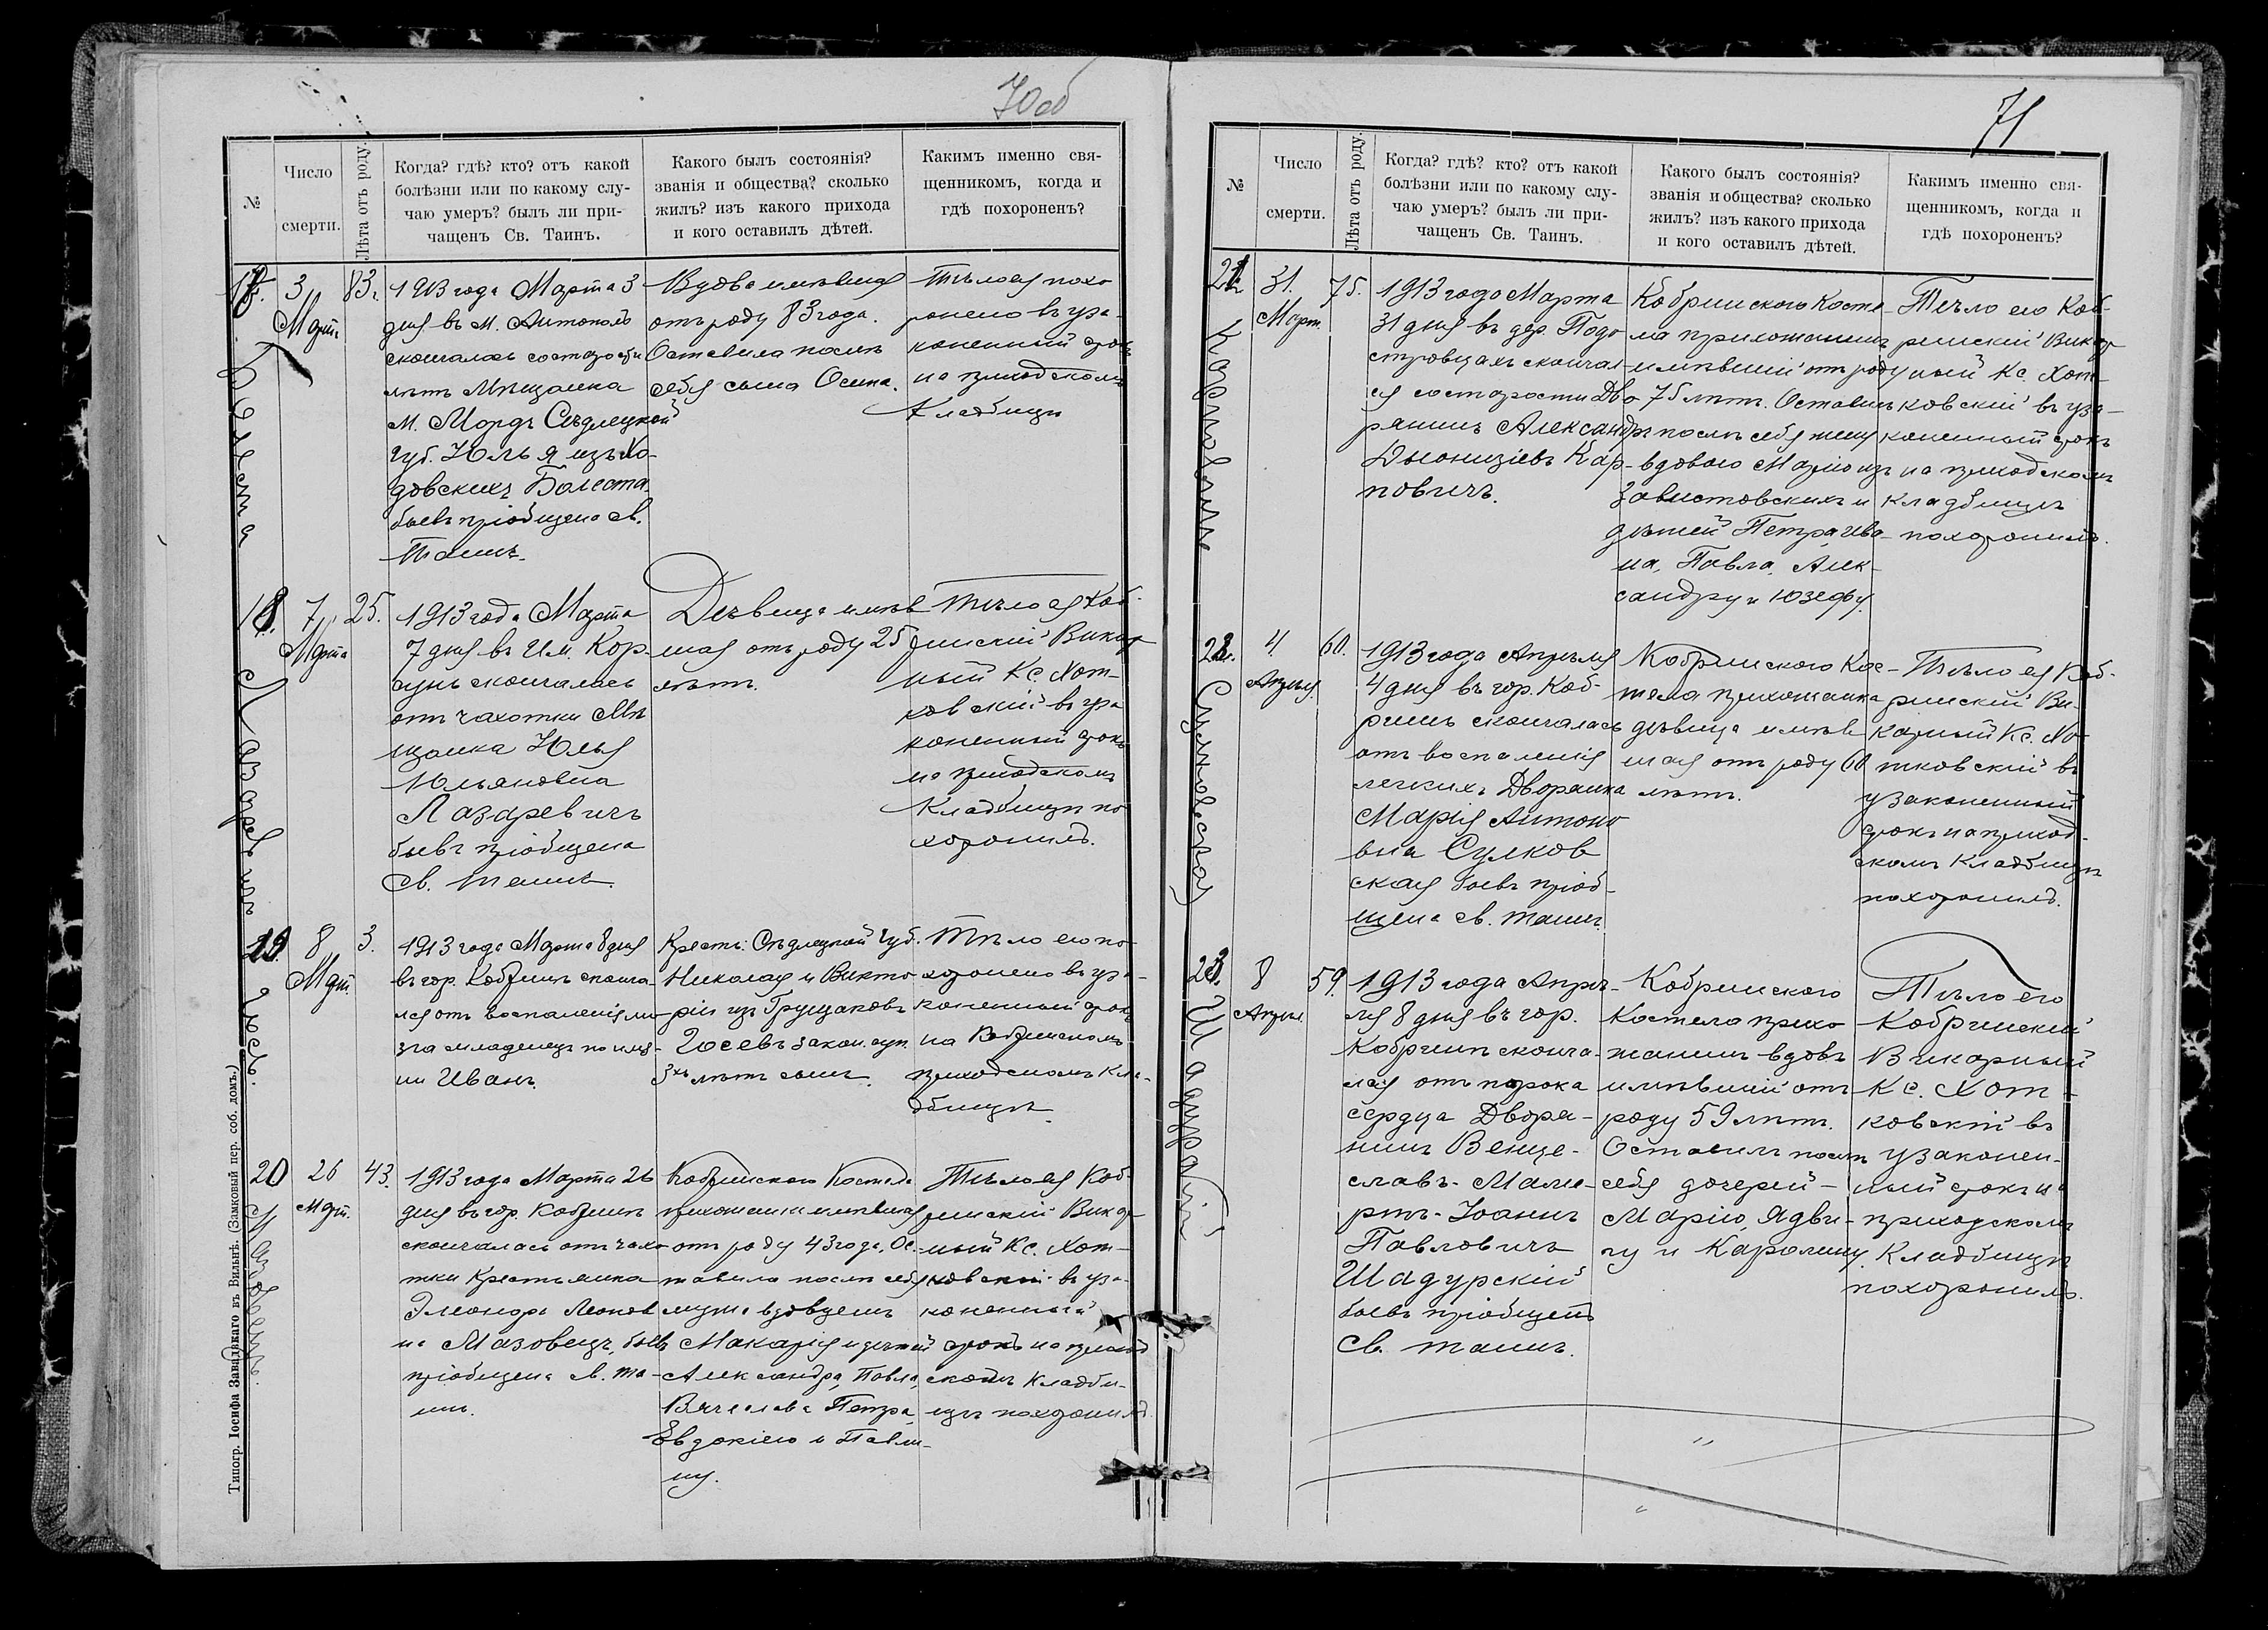 70 об
№
Число
смерти.
Лѣта отъ роду.
Когда? гдѣ? кто? отъ какой
болѣзни или по какому слу-
чаю умеръ? былъ ли при-
чащенъ Св. Таинъ.
Какого былъ состоянія?
званія и общества? сколько
жилъ? изъ какого прихода
и кого оставилъ дѣтей.
Какимъ именно свя-
щенникомъ, когда и
гдѣ похороненъ?
17.
3
Март.
83.
1913 года Марта 3
дня въ м. Антополѣ
скончалась со старости
лѣтъ Мѣщанка
м. Мордъ Сѣдлецкой
губ. Юлья изъ Хо-
довскихъ Болеста
бывъ пріобщена св.
Таинъ.
Вдова имѣвшая
отъ роду 83 года.
Оставила послѣ
себя сына Осипа.
Тѣло ея похо
ронено въ уза-
коненный срокъ
на приходскомъ
кладбищѣ
Болеста
18.
7
Марта
25.
1913 года Марта
7 дня въ им. Кор-
чунь скончалась
отъ чахотки Мѣ
щанка Юлья
Юльяновна
Лазаревичъ
бывъ пріобщена
св. таинъ.
Дѣвица имѣв
шая отъ роду 25
лѣтъ.
Тѣло ея Коб-
ринскій Викар
ный Кс. Хот-
ковскій въ уза
коненный срокъ
на приходскомъ
Кладбищѣ по
хоронилъ.
Лазаревичъ
19.
8
Март.
3.
1913 года Марта 8 дня
въ гор. Кобринѣ сконча-
лся отъ воспаленія мо-
зга младенецъ по име-
ни Иванъ.
Крестьян. Сѣдлецкой губ.
Николая и Викто
ріи изъ Грущаковъ
Госевъ закон. суп.
3хъ лѣтъ сынъ.
Тѣло его по-
хоронено въ уза-
коненный срокъ
на Кобринскомъ
приходскомъ кла-
дбищѣ.
Гось.
20
26
Март.
43.
1913 года Марта 26
дня въ гор. Кобринѣ
скончалась отъ чахо-
тки Крестьянка
Элеонора Леонов
на Мазовецъ, бывъ
пріобщена св. та-
инъ.
Кобринскаго Костела
прихожанка имѣвшая
отъ роду 43 года, Ос-
тавила послѣ себя
мужа вдовцемъ
Макарія и дѣтей
Александра, Павла,
Вячеслава Петра,
Евдокію и Павли-
ну.
Тѣло ея Коб-
ринскій Викар
ный Кс. Хот-
ковскій въ уза-
коненный
срокъ на приход
скомъ кладби-
щѣ похоронилъ.
Мазовецъ.
Типогр. Іосифа Завадзкаго въ Вильнѣ. (Замковый пер. соб. домъ.)
71
№
Число
смерти.
Лѣта отъ роду.
Когда? гдѣ? кто? отъ какой
болѣзни или по какому слу-
чаю умеръ? былъ ли при-
чащенъ Св. Таинъ.
Какого былъ состоянія?
званія и общества? сколько
жилъ? изъ какого прихода
и кого оставилъ дѣтей.
Какимъ именно свя-
щенникомъ, когда и
гдѣ похороненъ?
21.
31.
Март.
75.
1913 года Марта
31 дня въ дер. Подо
стровцахъ скончал-
ся со старости Дво
рянинъ Александръ
Дыонизіевъ Кар-
повичъ.
Кобринскаго Косте-
ла прихожанинъ
имѣвшій отъ роду
75 лѣтъ. Оставилъ
послѣ себя жену
вдовою Марію изъ
Завистовскихъ и
дѣтей Петра, Ива-
на, Павла, Алек-
сандру и Юзефу.
Тѣло его Коб-
ринскій Викар
ный Кс. Хот-
ковскій въ уза-
коненный срокъ
на приходскомъ
кладбищѣ
похоронилъ.
Карповичъ
22.
4.
Апрѣля.
60.
1913 года Апрѣля
4 дня въ гор. Коб-
ринѣ скончалась
отъ воспаленія
легкихъ Дворянка
Марія Антоно
вна Сулков
ская бывъ пріоб-
щена св. таинъ.
Кобринскаго Кос-
тела прихожанка
дѣвица имѣв
шая отъ роду 60
лѣтъ.
Тѣло ея Коб-
ринскій Ви-
карный Кс. Хо-
тковскій въ
узаконенный
срокъ на приход-
скомъ Кладбищѣ
похоронилъ.
Сулковская
23.
8
Апрѣл.
59.
1913 года Апрѣ-
ля 8 дня въ гор.
Кобринѣ сконча-
лся отъ порока
сердца Дворя-
нинъ Венце-
славъ-Ламе-
ртъ-Іоаннъ
Павловичъ
Шадурскій
бывъ пріобщенъ
Св. таинъ.
Кобринскаго
Костела прихо
жанинъ вдовъ
имѣвшій отъ
роду 59 лѣтъ.
Оставилъ послѣ
себя дочерей-
Марію, Ядви-
гу и Каролину.
Тѣло его
Кобринскій
Викарный
Кс. Хот-
ковскій въ
узаконен-
ный срокъ на
приходскомъ
Кладбищѣ
похоронилъ.
Шадурскій